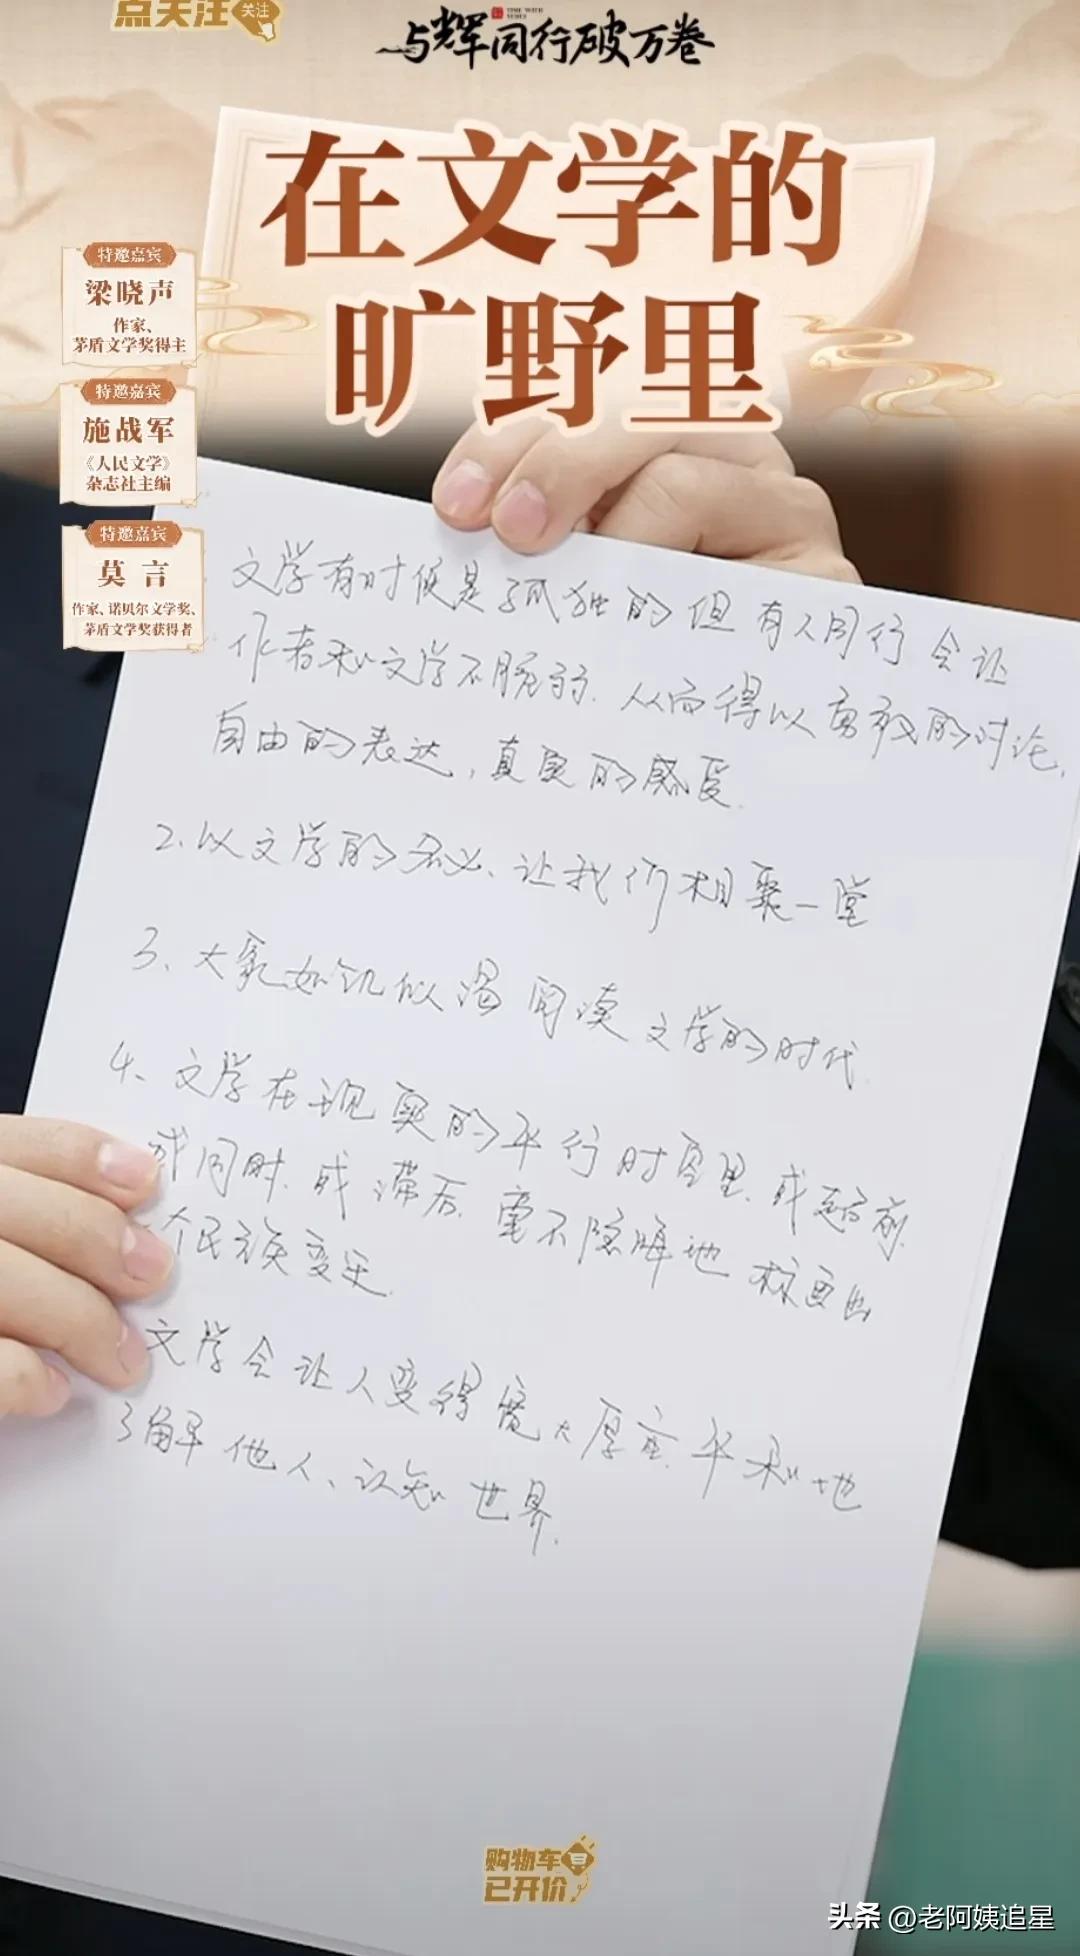 点关注
关注
与辉同行破万卷
TIME WITH
在文学的
旷野里
特邀嘉宾
梁晓声
作家、
茅盾文学奖得主
特邀嘉宾
施战军
《人民文学》
杂志社主编
特邀嘉宾
莫言
作家、诺贝尔文学奖、
茅盾文学奖获得者
文学有时候是孤独的 但有人同行 会让
作者和文学不脆弱. 从而得以勇敢的讨论,
自由的表达, 真实的感受.
2.以文学的名义、让我们相聚一堂
3、大家如饥似渴阅读文学的时代.
4、文学在现实的平行时空里, 或超前,
或同时. 或滞后, 毫不隐晦地标画出
个民族变迁.
文学会让人变得宽大厚重. 平和地
了解他人、认知世界.
购物车
已开价
头条 @老阿姨追星